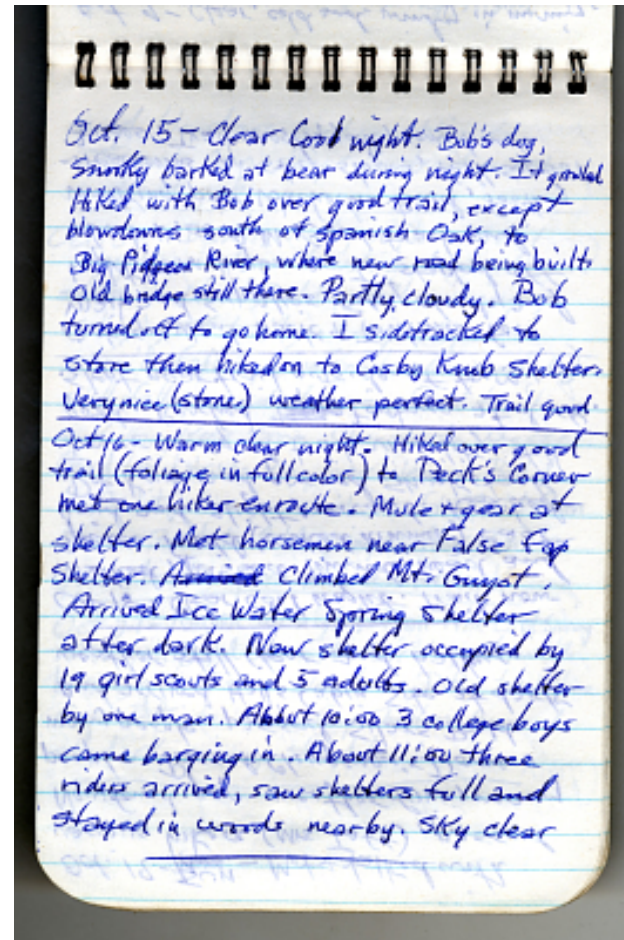 Oct. 15 - Clear Cool night. Bob's dog,
Smoky barked at bear during night. It growled
Hiked with Bob over good trail, except
blowdowns south of Spanish Oak, to
Big Pidgeon River, where new road being built.
Old bridge still there. Partly cloudy. Bob
turned off to go home. I sidetracked to
store then hiked on to Cosby Knob Shelter.
Very nice (stone) weather perfect. Trail good.
Oct 16 - Warm clear night. Hiked over good
trail (foliage in full color) to Peck's Corner
met one hiker enroute. Mule + gear at
shelter. Met horsemen near False Gap
Shelter. Arrived Climbed Mt. Guyot.
Arrived Ice Water Spring shelter
after dark. New shelter occupied by
19 girl scouts and 5 adults. Old shelter
by one man. About 10:00 3 college boys
came barging in. About 11:00 three
riders arrived, saw shelters full and
stayed in woods nearby. Sky clear